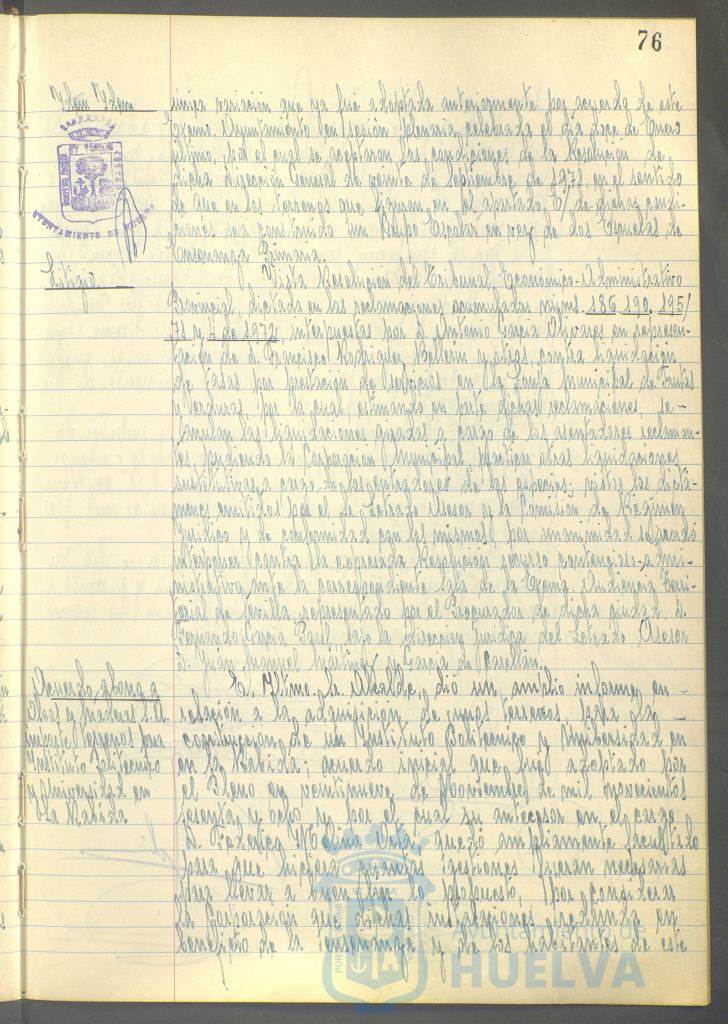 76
Idem Idem
única variación que ya fue adoptada anteriormente por acuerdo de este
Excmo. Ayuntamiento en sesión plenaria, celebrada el día doce de Enero
último, por el cual se aceptaran las condiciones de la Resolución de
dicha Dirección General de veinte de Septiembre de 1971, en el sentido
de que en los terrenos que figuran en el apartado C/ de dichas condi-
ciones sea construido un Grupo Escolar en vez de dos Escuelas de
Enseñanza Primaria.
AYUNTAMIENTO DE HUELVA
Litigio
Vista Resolución del Tribunal Económico-Administrativo
Provincial, dictada en las reclamaciones acumuladas núms 186, 190, 195/
71 y 4 de 1972, interpuestas por D. Antonio García Olivares en represen-
tación de D. Francisco Rodríguez Bellerín y otros, contra liquidación
de tasas por prestación de servicios en la Lonja Municipal de Frutas
y Verduras, por la cual, estimando en parte dichas reclamaciones, se
anulan las liquidaciones giradas a cargo de los asentadores reclaman-
tes pudiendo la Corporación Municipal practicar otras liquidaciones
sustitutivas a cargo de los entradores de las especies; vistos los dictá-
menes emitidos por el Sr. Letrado Asesor y la Comisión de Régimen
Jurídico y de conformidad con los mismos, por unanimidad se acordó
interponer contra la expresada Resolución recurso contencioso-admi-
nistrativo ante la correspondiente Sala de la Excma. Audiencia Terri-
torial de Sevilla, representado por el Procurador de dicha ciudad D.
Fernando García Paúl bajo la dirección jurídica del Letrado Asesor
D. Juan Manuel y García de
Acuerdo abono a
y Maderas S.A.
importe terrenos para
Instituto Politécnico
y Universidad en
La Rábida
El Iltmo. Sr. Alcalde, dió un amplio informe en
relación a la adquisición de unos terrenos para la
construcción de un Instituto Politécnico y Universidad en
en la Rábida; acuerdo inicial que fué adoptado por
el Pleno en veintinueve de Noviembre de mil novecientos
sesenta y ocho y por el cual su antecesor en el cargo
D. Federico Molina Orta quedó ampliamente facultado
para que hiciera cuantas gestiones fueran necesarias
para llevar a buen fin lo propuesto, por considerar
la Corporación que dichas instalaciones redunda en
beneficio de la enseñanza y de los habitantes de este
Ayuntamiento de
HUELVA